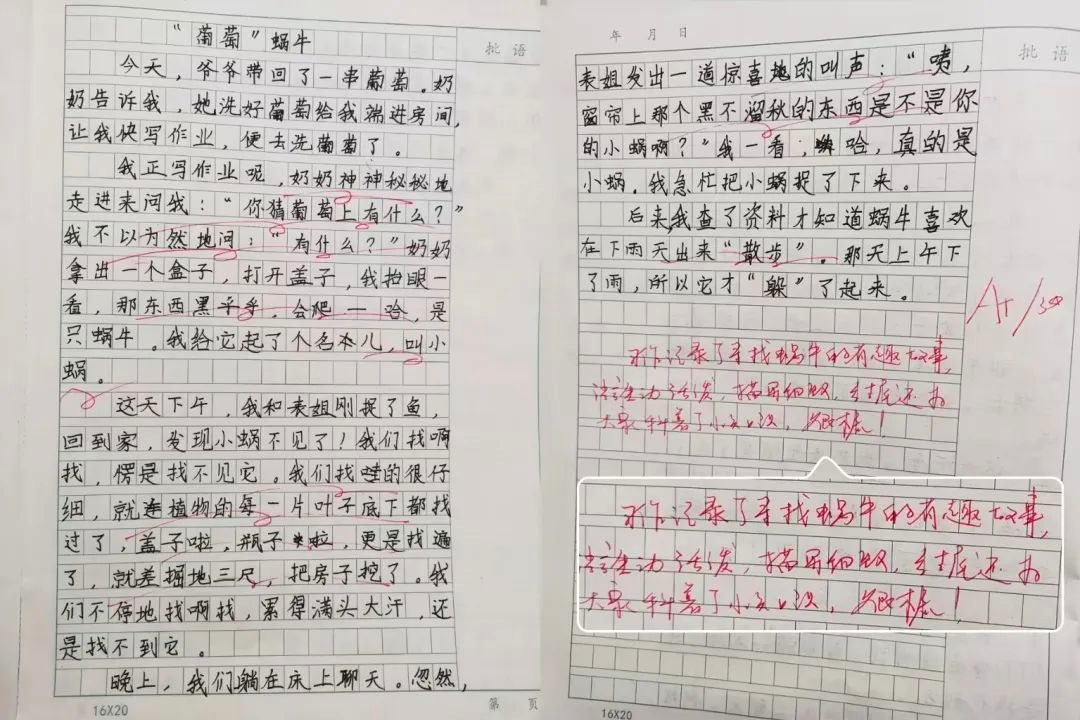 批语
“葡萄”蜗牛
今天，爷爷带回了一串葡萄。奶
奶告诉我，她洗好葡萄给我端进房间，
让我快写作业，便去洗葡萄了。
我正写作业呢，奶奶神神秘秘地
走进来问我：“你猜葡萄上有什么？”
我不以为然地问：“有什么？”奶奶
拿出一个盒子，打开盖子，我抬眼一
看，那东西黑乎乎，会爬一哈，是
只蜗牛。我给它起了个名儿，叫小
蜗。
这天下午，我和表姐刚捉了鱼，
回到家，发现小蜗不见了！我们找啊
找，愣是找不见它。我们找的很仔
细，就连植物的每一片叶子底下都找
过了，盖子啦，瓶子啦，更是找遍
了，就差掘地三尺，把房子挖了。我
们不停地找啊找，累得满头大汗，还
是找不到它。
晚上，我们躺在床上聊天。忽然，
16X20
第 页
年 月 日
批语
表姐发出一道惊喜地的叫声：“啧，
窗帘上那个黑不溜秋的东西是不是你
的小蜗啊？”我一看，哈，真的是
小蜗。我急忙把小蜗捉了下来。
后来，我查了资料才知道蜗牛喜欢
在下雨天出来“散步”。那天上午下
了雨，所以它才“躲”了起来。
习作记录了寻找蜗牛的有趣故事，
语言生动活泼，描写细致，结尾还为
大家科普了小知识，为你点赞！
习作记录了寻找蜗牛的有趣故事，
语言生动活泼，描写细致，结尾还为
大家科普了小知识，
16X20